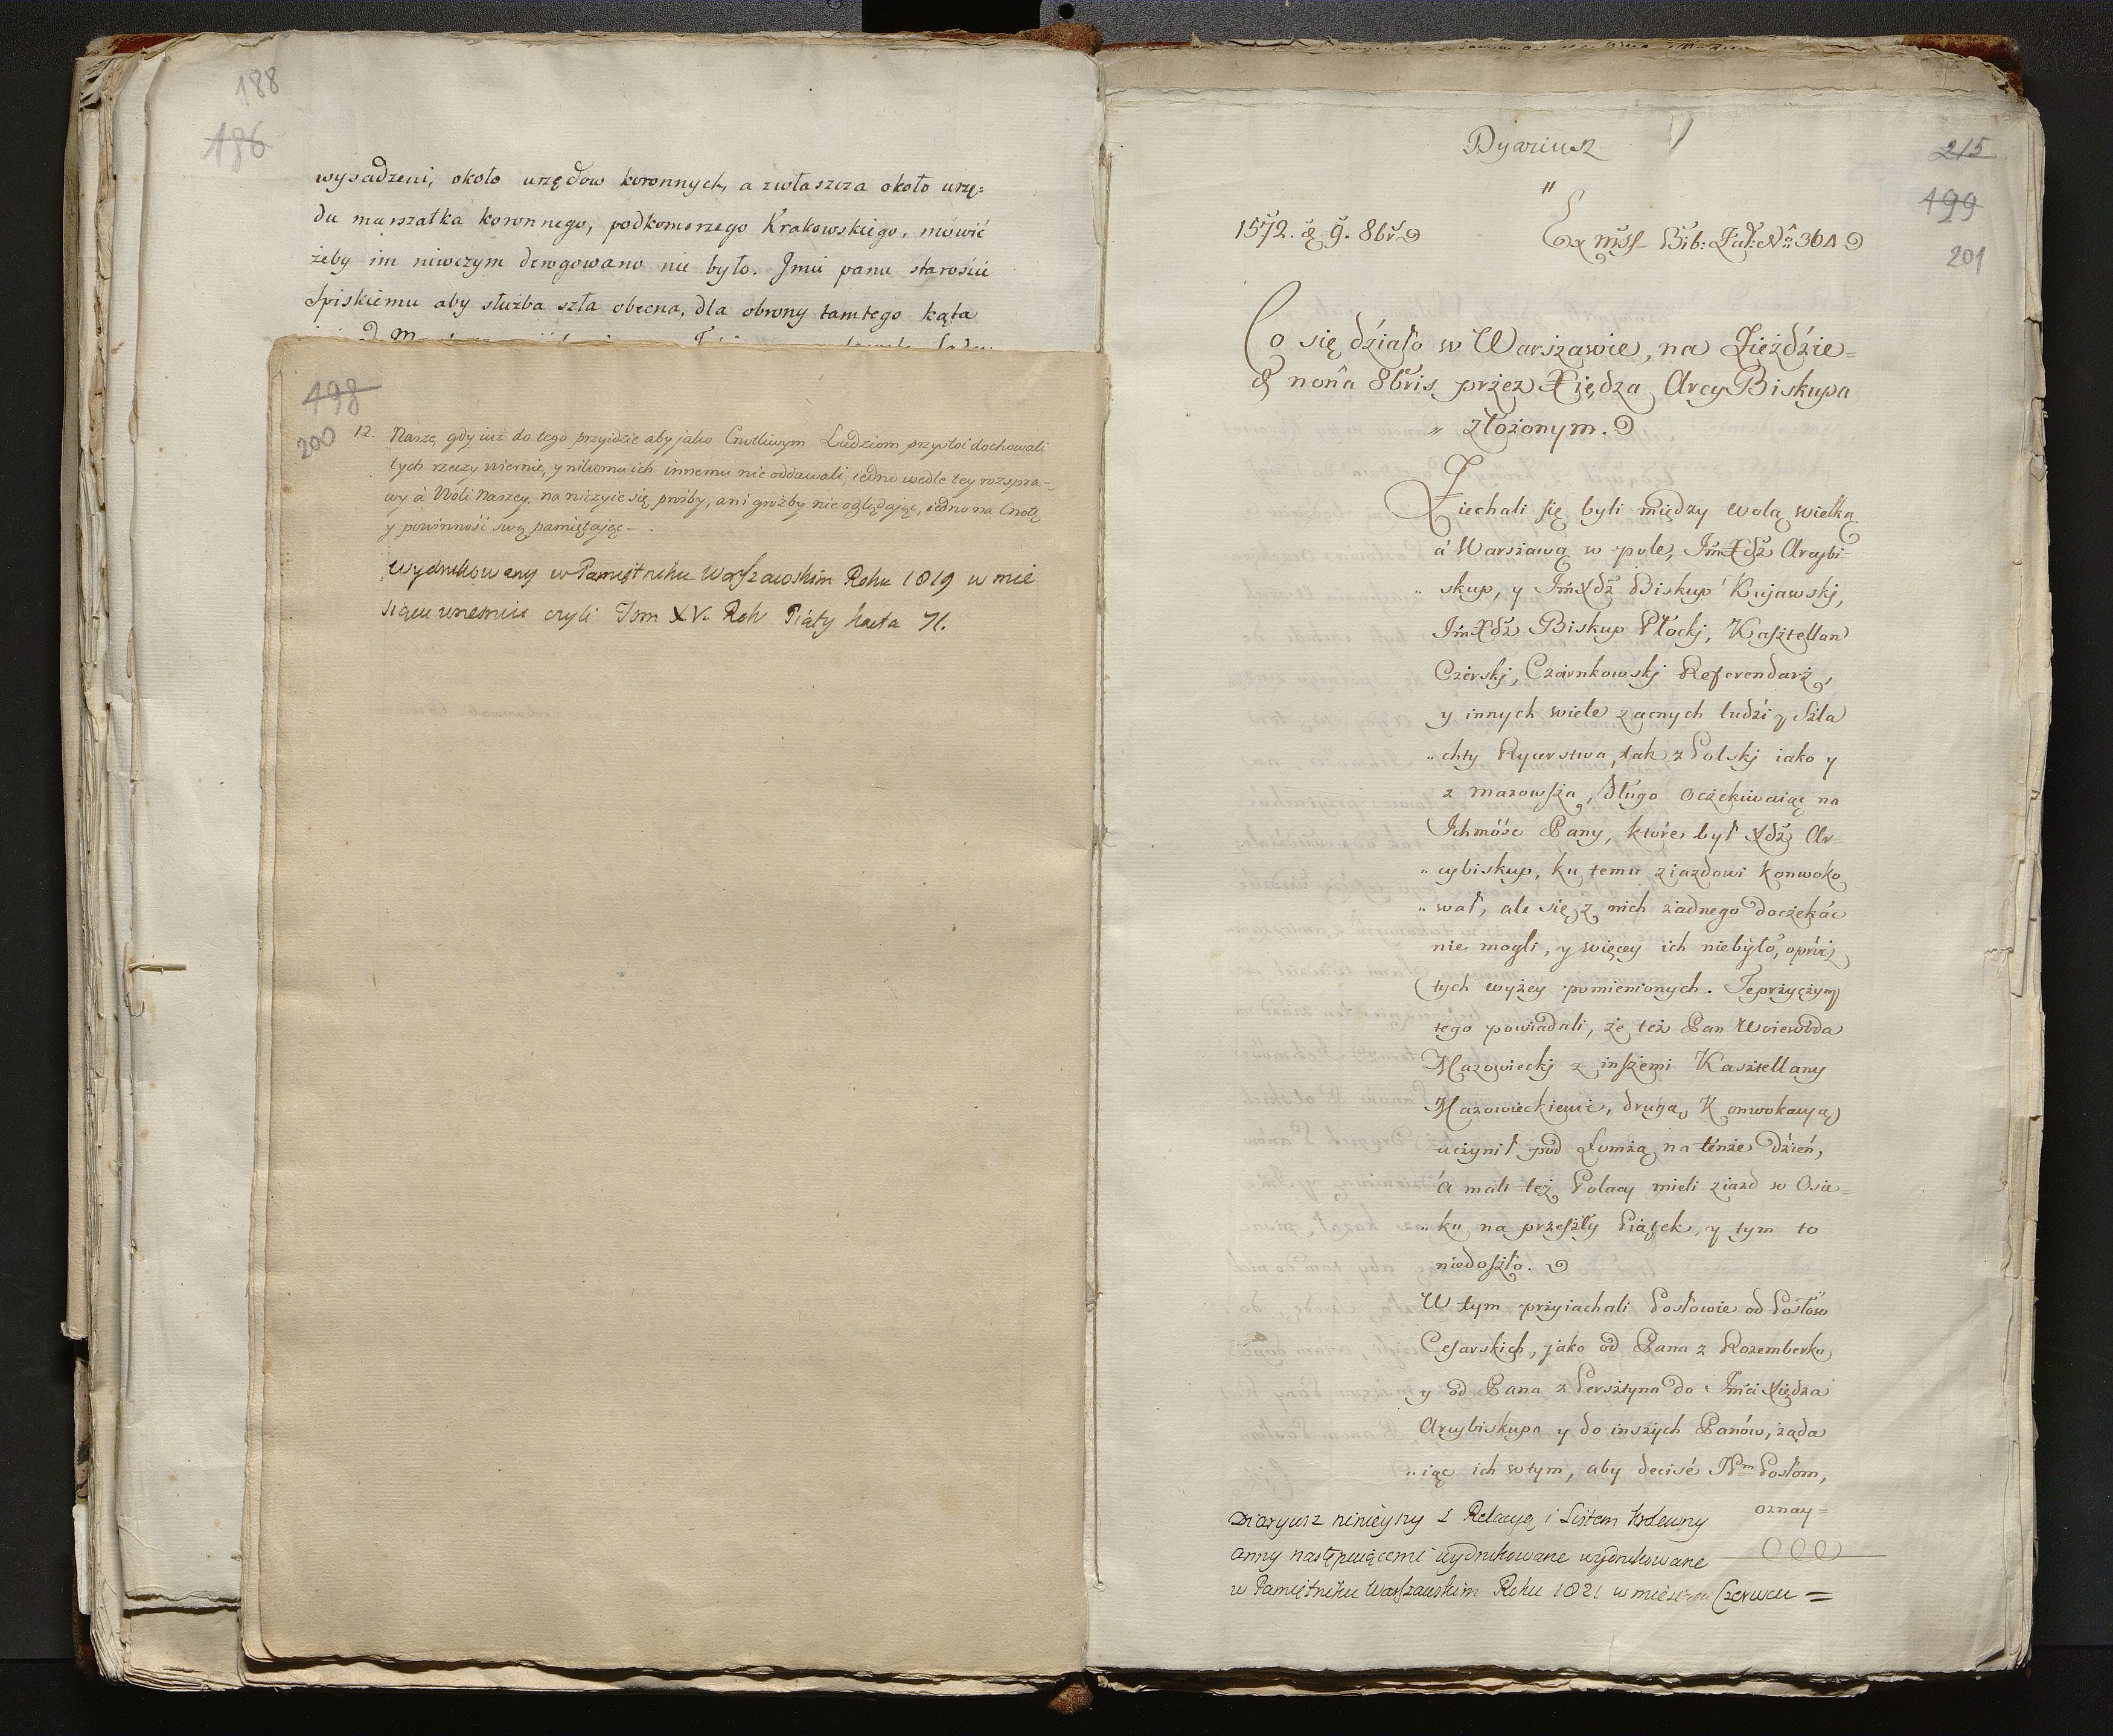 188
186
wysadzeni, około urzędow koronnych, a zwłaszcza około urzę=
du marszałka koronnego, podkomorzego Krakowskiego, mówić
żeby im niwczym derogowano nie było. Jmci panu starości
Spiskiemu aby służba szła obecna, dla obrony tamtego kąta
498
200
12. Nasze, gdy iuż do tego przyidzie aby jako Cnotliwym Ludziom przystoi dochowali
tych rzeczy wiernie, y nikomu ich innemu nie oddawali, iedno wedle tey rozspra-
wy à Woli Naszey, na niczyie się prośby, ani groźby nie oglądaiąc, iedno na Cnotę
y powinność swą pamiętaiąc —.
wydrukowany w Pamiętniku Warszawskim Roku 1819 w mie
siącu wrzesniu czyli Tom XV. Rok Piąty karta 71.
Dyariusz
"
215
499
201
1572. d 9. 8br
Ex mss Bib: Zał: No 304
Co się działo w Warszawie, na Zieździe=
d nona 8bris przez Xiędza ArcyBiskupa
" złożonym.
Ziechali się byli między wolą wielką
á Warszawą w pole, JmXdz Arcybi-
" skup, y JmXdz Biskup Kujawskj,
JmXdz Biskup Płockj, Kasztellan
Czerskj, Czarnkowskj Referendarz,
y innych wiele zacnych ludzi y Szla
" chty Rycerstwa, tak z Polskj iako y
z Mazowsza, długo oczekiwaiąc na
Ichmość Pany, które był Xdz Ar=
" cybiskup, ku temu ziazdowi konwoko
" wał, ale się z nich żadnego doczekać
nie mogli, y więcey ich niebyło, oprócz
tych wyżey pomienionych. Teprzyczyny
tego powiadali, że też Pan Woiewoda
Mazowieckj z inszemi Kasztellany
Mazowieckiemi, drugą Konwokacyą
uczynił pod Łomżą na tenże dzień,
á mali też Polacy mieli ziazd w Osie=
" ku na przeszły Piątek, y tym to
niedoszło.
W tym przyiachali Posłowie od Posłów
Cesarskich, jako od Pana z Rozemberku
y od Pana z Persztyna do Jmci Xiędza
Arcybiskupa y do inszych Panów, żąda
" iąc ich wtym, aby decisé Nm Posłom,
oznay=
Diaryusz ninieyszy z Relacyą i Listem Krolewny
Anny następuiącemi wydrukowane wydrukowane
w Pamiętniku Warszawskim Roku 1821 w miesiącu Czerwcu =